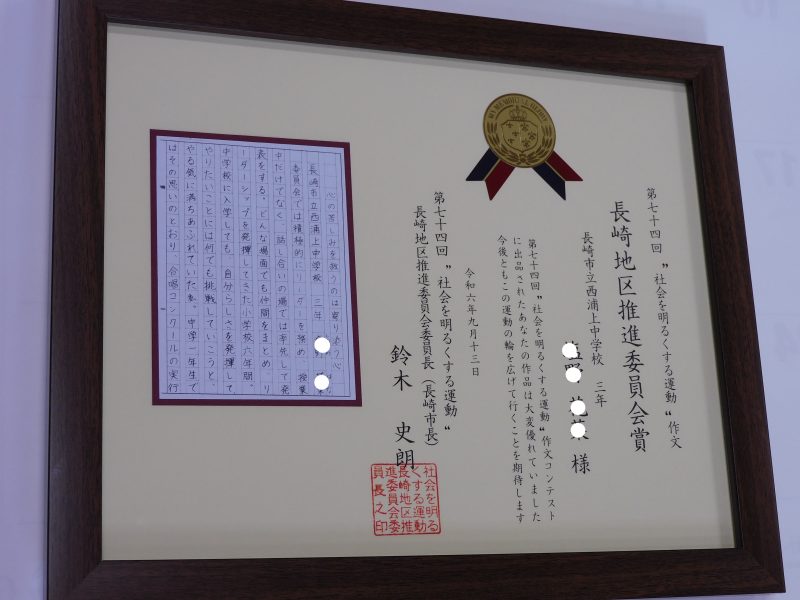 MY MEMORIAL HERITY
第七十四回〝社会を明るくする運動〟作文
長崎地区推進委員会賞
長崎市立西浦上中学校 三年
様
第七十四回〝社会を明るくする運動〟作文コンテスト
に出品されたあなたの作品は大変優れていました
今後ともこの運動の輪を広げて行くことを期待します
令和六年九月十三日
第七十四回〝社会を明るくする運動〟
長崎地区推進委員会委員長(長崎市長)
鈴木 史朗
社会を明る
くする運動
長崎地区推
進委員会委
員長之印
心の苦しみを救うのは寄りそう心
長崎市立西浦上中学校 三年
委員会では積極的にリーダーを務め、授業
中だけでなく、話し合いの場では率先して発
表をする。どんな場面でも仲間をまとめ、リ
ーダーシップを発揮してきた小学校六年間。
中学校に入学しても、自分らしさを発揮して
やりたいことには何でも挑戦していこうと、
やる気に満ちあふれていた私。中学一年生で
はその思いのとおり、合唱コンクールの実行